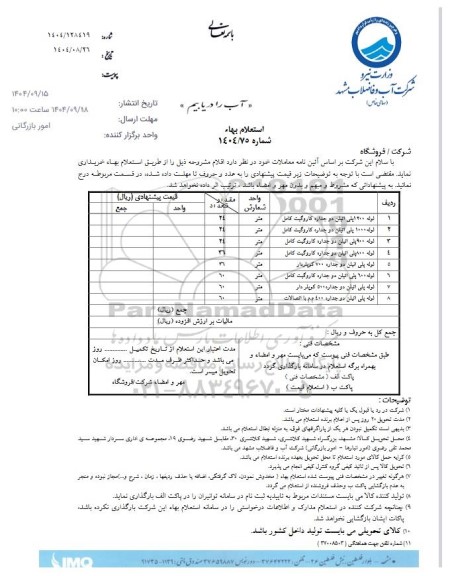 باسمه تعالی
شماره: ۱۴۰۴/۱۲۸۴۱۹
تاریخ: ۱۴۰۴/۰۸/۲۱
پیوست:
وزارت نیرو
شرکت آب و فاضلاب مشهد
(سهامی خاص)
« آب را دریابیم »
تاریخ انتشار: ۱۴۰۴/۰۹/۱۵
مهلت ارسال: ۱۴۰۴/۰۹/۱۸ ساعت ۱۰:۰۰
واحد برگزار کننده: امور بازرگانی
استعلام بهاء
شماره ۱۴۰۴/۷۵
شرکت / فروشگاه
با سلام این شرکت بر اساس آئین نامه معاملات خود در نظر دارد اقلام مشروحه ذیل را از طریق استعلام بهاء خریداری
نماید. مقتضی است با توجه به توضیحات زیر قیمت پیشنهادی را به عدد و حروف تا مهلت داده شده، در قسمت مربوطه درج
نمائید. به پیشنهاداتی که مشروط و مبهم و بدون مهر و امضاء باشد، ترتیب اثر داده نخواهد شد.
ردیف
واحد شمارش
قیمت پیشنهادی (ریال)
واحد
جمع
۱ لوله ۱۲۰۰ پلی اتیلن دو جداره کاروگیت کامل متر ۲۴
۲ لوله ۱۰۰۰ پلی اتیلن دو جداره کاروگیت کامل متر ۲۴
۳ لوله ۹۰۰ پلی اتیلن دو جداره کاروگیت کامل متر ۲۴
۴ لوله ۸۰۰ پلی اتیلن دو جداره کاروگیت کامل متر ۳۶
۵ لوله پلی اتیلن دو جداره ۷۰۰ کوپلردار متر ۳۶
۶ لوله ۶۰۰ پلی اتیلن دو جداره کاروگیت کامل متر ۶۰
۷ لوله پلی اتیلن دو جداره ۵۰۰ کوپلردار متر ۶۰
۸ لوله پلی اتیلن دو جداره ۴۰۰ م.م با اتصالات متر ۶۰
جمع (ریال)
مالیات بر ارزش افزوده (ریال)
جمع کل به حروف و ریال:
مشخصات فنی:
طبق مشخصات فنی پیوست که می‌بایست مهر و امضاء و
بهمراه برگه استعلام در سامانه بارگذاری گردد
پاکت الف ( مشخصات فنی )
پاکت ب ( استعلام قیمت )
مدت اعتبار این استعلام از تاریخ تکمیل ........ روز
می باشد و حداکثر ظرف مدت ........ روز امکان
تحویل میسر است.
مهر و امضاء شرکت/فروشگاه
توضیحات :
۱) شرکت در رد یا قبول یک یا کلیه پیشنهادات مختار است.
۲) مدت تحویل ۲۰ روز پس از اعلام برنده استعلام می باشد.
۳) بدیهی است تکمیل نبودن هر یک از پاراگرفهای فوق، به منزله ابطال استعلام می باشد.
۴) محل تحویل کالا: مشهد، بزرگراه شهید کلانتری، شهید کلانتری ۳۰، مقابل شهید رضوی ۱۹، مجموعه ی اداری سردار شهید سید
محمد تقی رضوی (امور انبارها – امور بازرگانی) شرکت آب و فاضلاب مشهد می باشد.
۵) کرایه حمل کالای مورد استعلام تا محل تحویل بعهده برنده استعلام می باشد.
۶) تحویل کالا پس از تائید کیفی گروه کنترل کیفی انجام می پذیرد.
۷) هرگونه تغییر در مشخصات فنی پیوست شده استعلام بهاء ( مخدوش نمودن، لاک گرفتگی، اضافه یا حذف ردیفها ، زمان ، شرح و...)مجاز نبوده و منجر
به عدم بازگشایی پاکت ب وحذف فروشنده از استعلام می گردد.
۸) تولید کننده کالا می بایست مستندات مربوط به تاییدیه ثبت نام در سامانه توانیران را در پاکت الف بارگذاری نماید.
۹) چنانچه شرکت کننده در استعلام مدارک و اطلاعات درخواستی را در سامانه استعلام بهاء این شرکت بارگذاری نکرده باشد،
پاکات ایشان بازگشایی نخواهد شد.
۱۰) کالای تحویلی می بایست تولید داخل کشور باشد.
۱۱) شماره تلفن جهت هماهنگی (۳۷۰۰۸۵۰۳)
ParsNamadData
۰۲۱-۸۸۳۴۹۶۷۰
IMQ